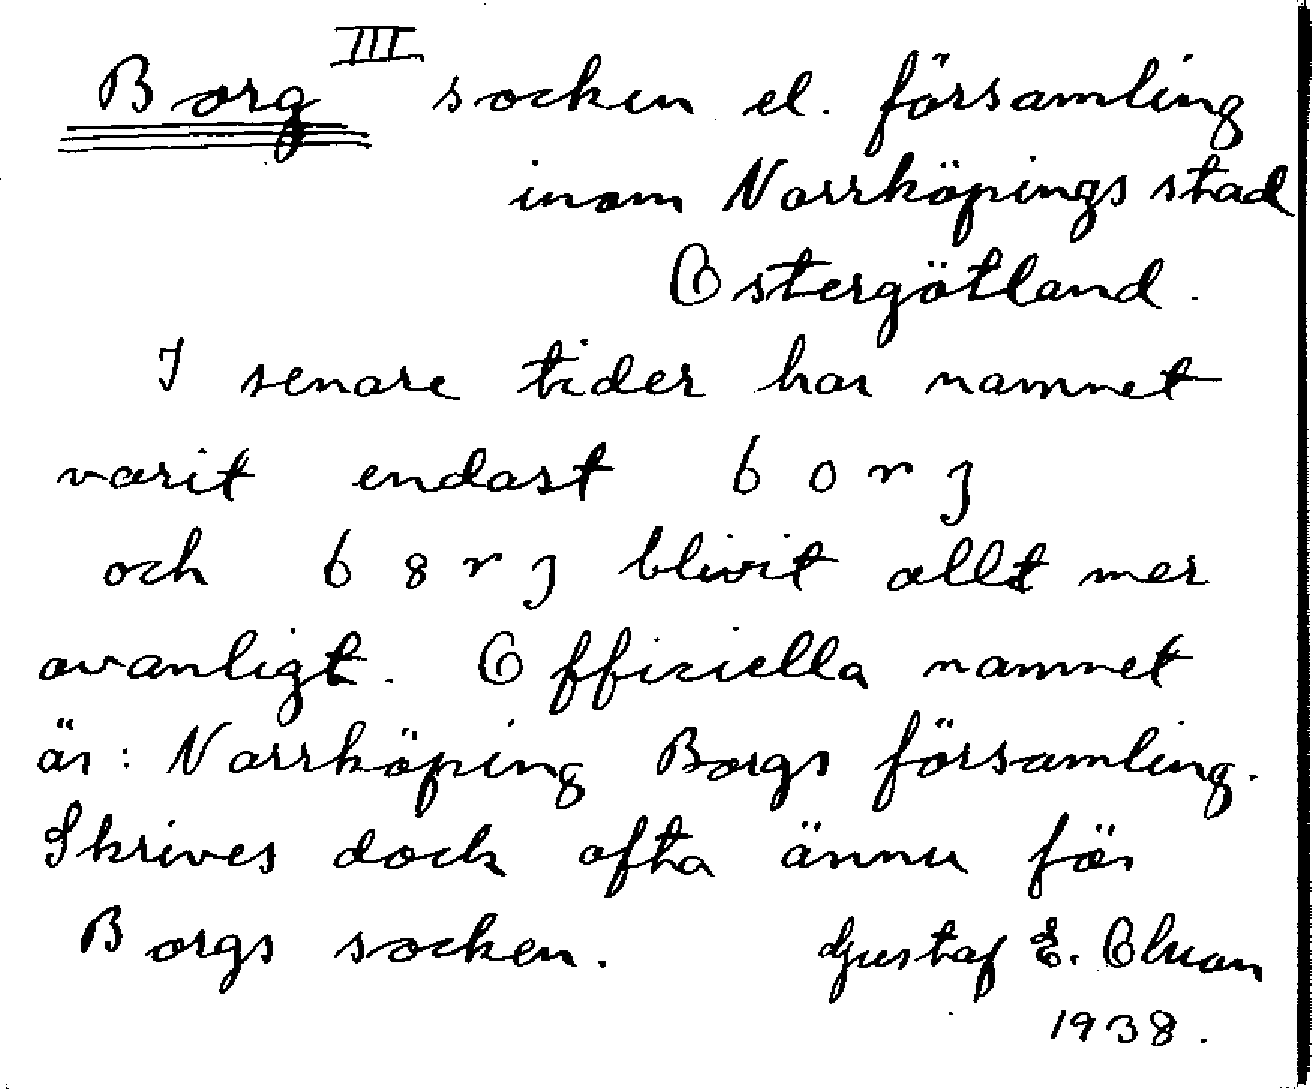 Borg III socken el. församling
inom Norrköpings stad
Östergötland.
I senare tider har namnet
varit endast b o r j
och b 8 r j blivit allt mer
ovanligt. Officiella namnet
är: Norrköping Borgs församling.
Skrives dock ofta ännu för
Borgs socken. Gustaf E.
1938.